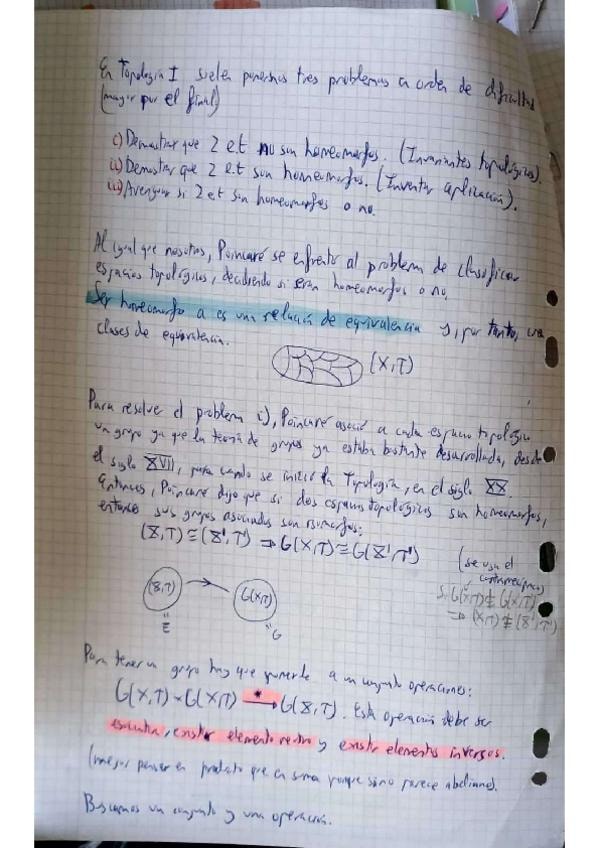 En Topología I suelen ponernos tres problemas a orden de dificultad
(mayor por el final)
i) Demostrar que 2 e.t no son homeomorfos. (Invariantes topológicos).
ii) Demostrar que 2 e.t son homeomorfos. (Inventar aplicación).
iii) Averiguar si 2 et son homeomorfos o no.
Al igual que nosotros, Poincaré se enfrentó al problema de clasificar
espacios topológicos, decidiendo si serán homeomorfos o no.
Ser homeomorfo a es una relación de equivalencia y, por tanto, crea
clases de equivalencia.
(X,T)
Para resolver el problema i), Poincaré asoció a cada espacio topológico
un grupo ya que la teoría de grupos ya estaba bastante desarrollada, desde
el siglo XVII, para cuando se inició la Topología, en el siglo XX.
Entonces, Poincaré dijo que si dos espacios topológicos son homeomorfos,
entonces sus grupos asociados son isomorfos:
(X,T) ≡ (X',T') ⇒ G(X,T) ≡ G(X',T')
(se usa el
contrarrecíproco)
si G(X,T) ≢ G(X,T)
⇒ (X,T) ≢ (X',T')
(X,T) → G(X,T)
" "
E G
Para tener un grupo hay que ponerle a un conjunto operaciones:
G(X,T) × G(X,T) * → G(X,T). Esta operación debe ser
asociativa, existir elemento neutro y existir elementos inversos.
(mejor pensar en producto que en suma porque sino parece abeliano).
Buscamos un conjunto y una operación.